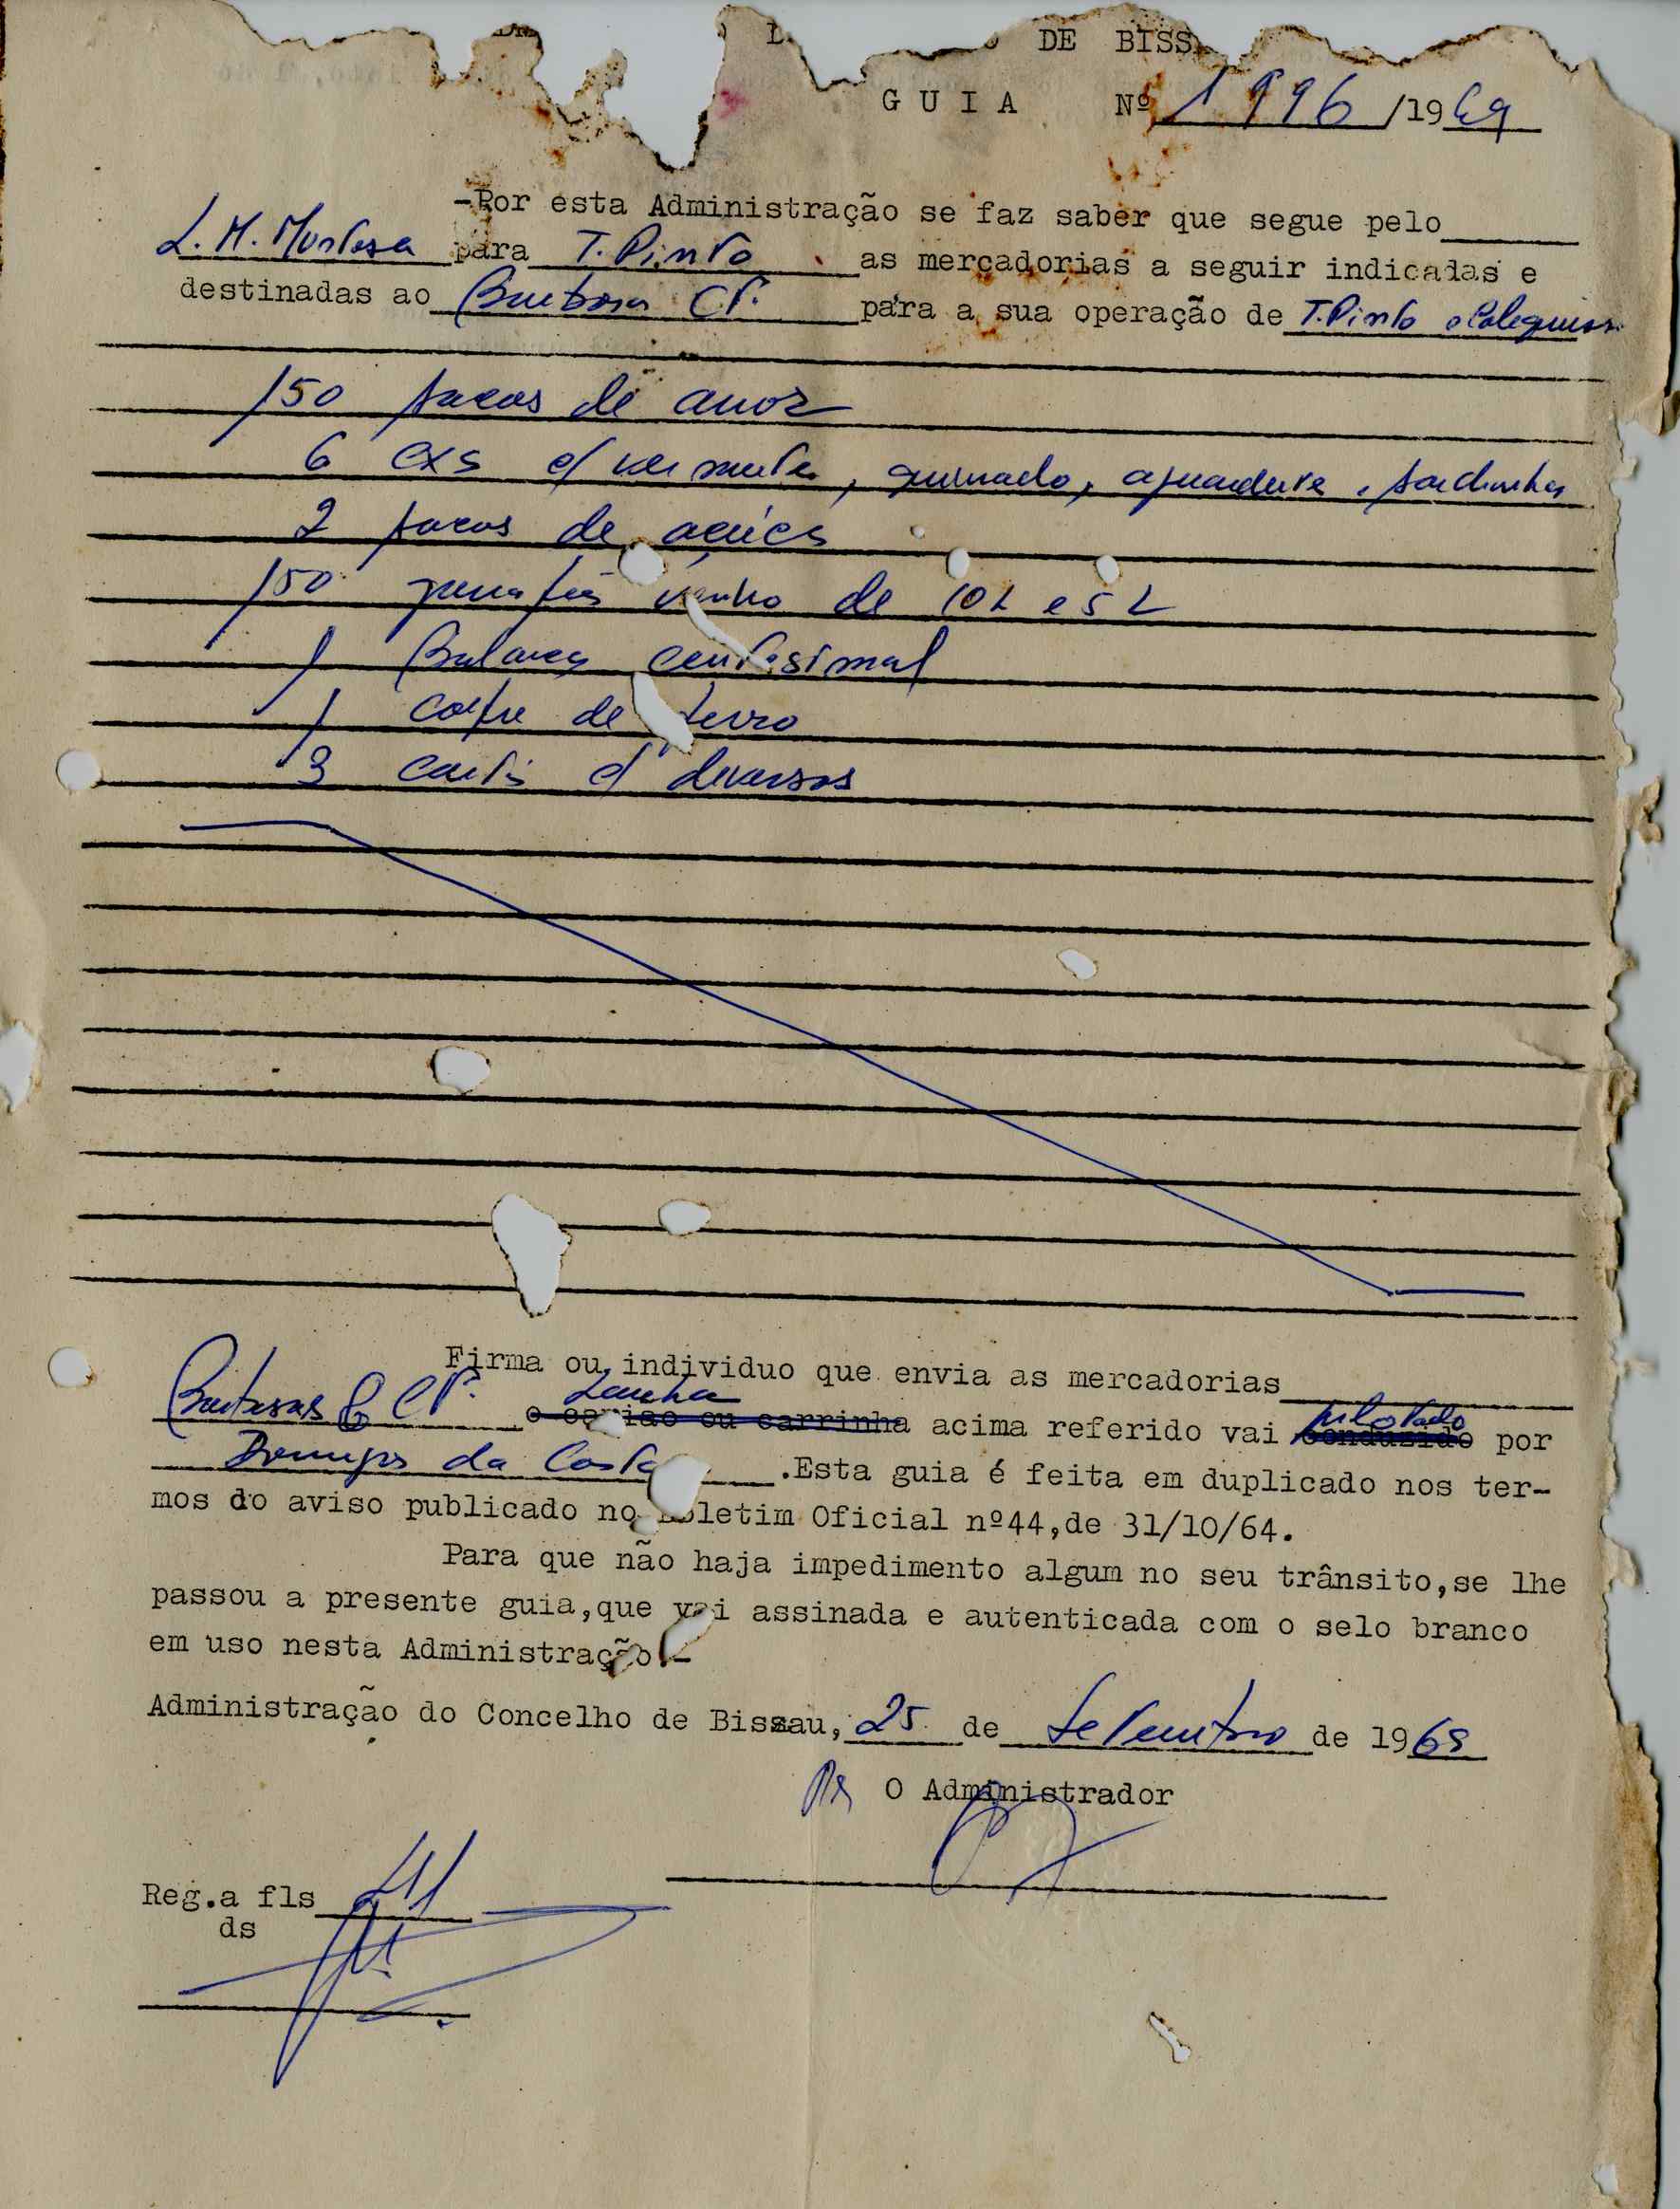 DE BISS
GUIA Nº 1996/1969
-Por esta Administração se faz saber que segue pelo
L. M. Montesa para T. Pinto as mercadorias a seguir indicadas e
destinadas ao Barbosa Cª. para a sua operação de T. Pinto e
150 sacos de arroz
6 cxs c/ vermute, quinado, aguardente, sardinhas
2 sacos de açúcar
150 garrafões vinho de 10 L e 5 L
1 Balança centesimal
1 cofre de ferro
3 c/ diversos
Firma ou individuo que envia as mercadorias
Barbosas & Cª. Lancha
o camiao ou carrinha acima referido vai pilotado conduzido por
Domingos da Costa .Esta guia é feita em duplicado nos ter-
mos do aviso publicado no Boletim Oficial nº44,de 31/10/64.
Para que não haja impedimento algum no seu trânsito,se lhe
passou a presente guia,que vai assinada e autenticada com o selo branco
em uso nesta Administração.-
Administração do Concelho de Bissau, 25 de Setembro de 1969
O Administrador
Reg.a fls
ds